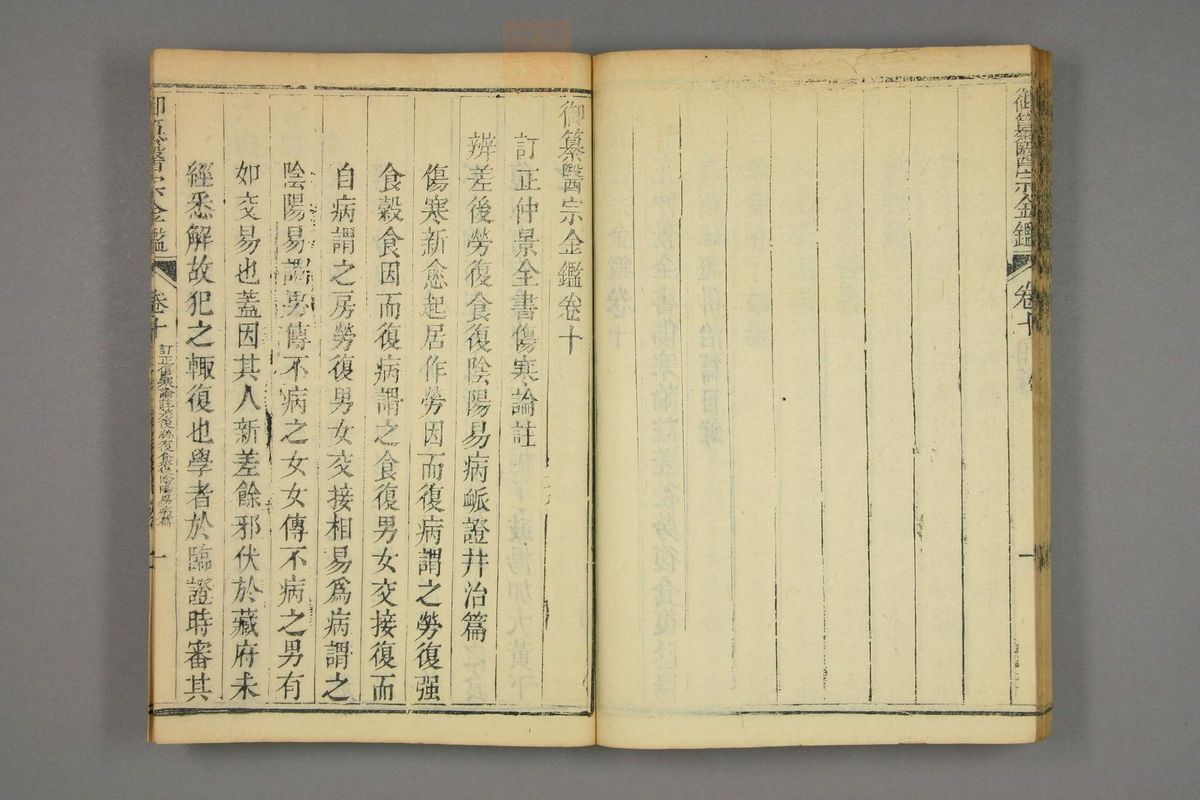 御纂醫宗金鑑
卷十
一
御纂醫宗金鑑卷十
訂正仲景全書傷寒論註
辨差後勞復食復陰陽易病脈證并治篇
傷寒新愈起居作勞因而復病謂之勞復强
食穀食因而復病謂之食復男女交接復而
自病謂之房勞復男女交接相易爲病謂之
陰陽易謂男傳不病之女女傳不病之男有
如交易也蓋因其人新差餘邪伏於藏府未
經悉解故犯之輙復也學者於臨證時審其
御纂醫宗金鑑
卷十
一